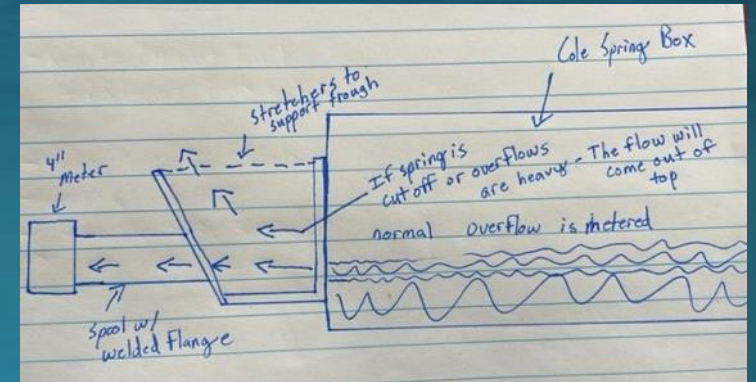 Cole Spring Box
stretchers to
support trough
4"
meter
If spring is
cut off or overflows
are heavy - The flow will
come out of
top
normal overflow is metered
Spool w/
welded flange